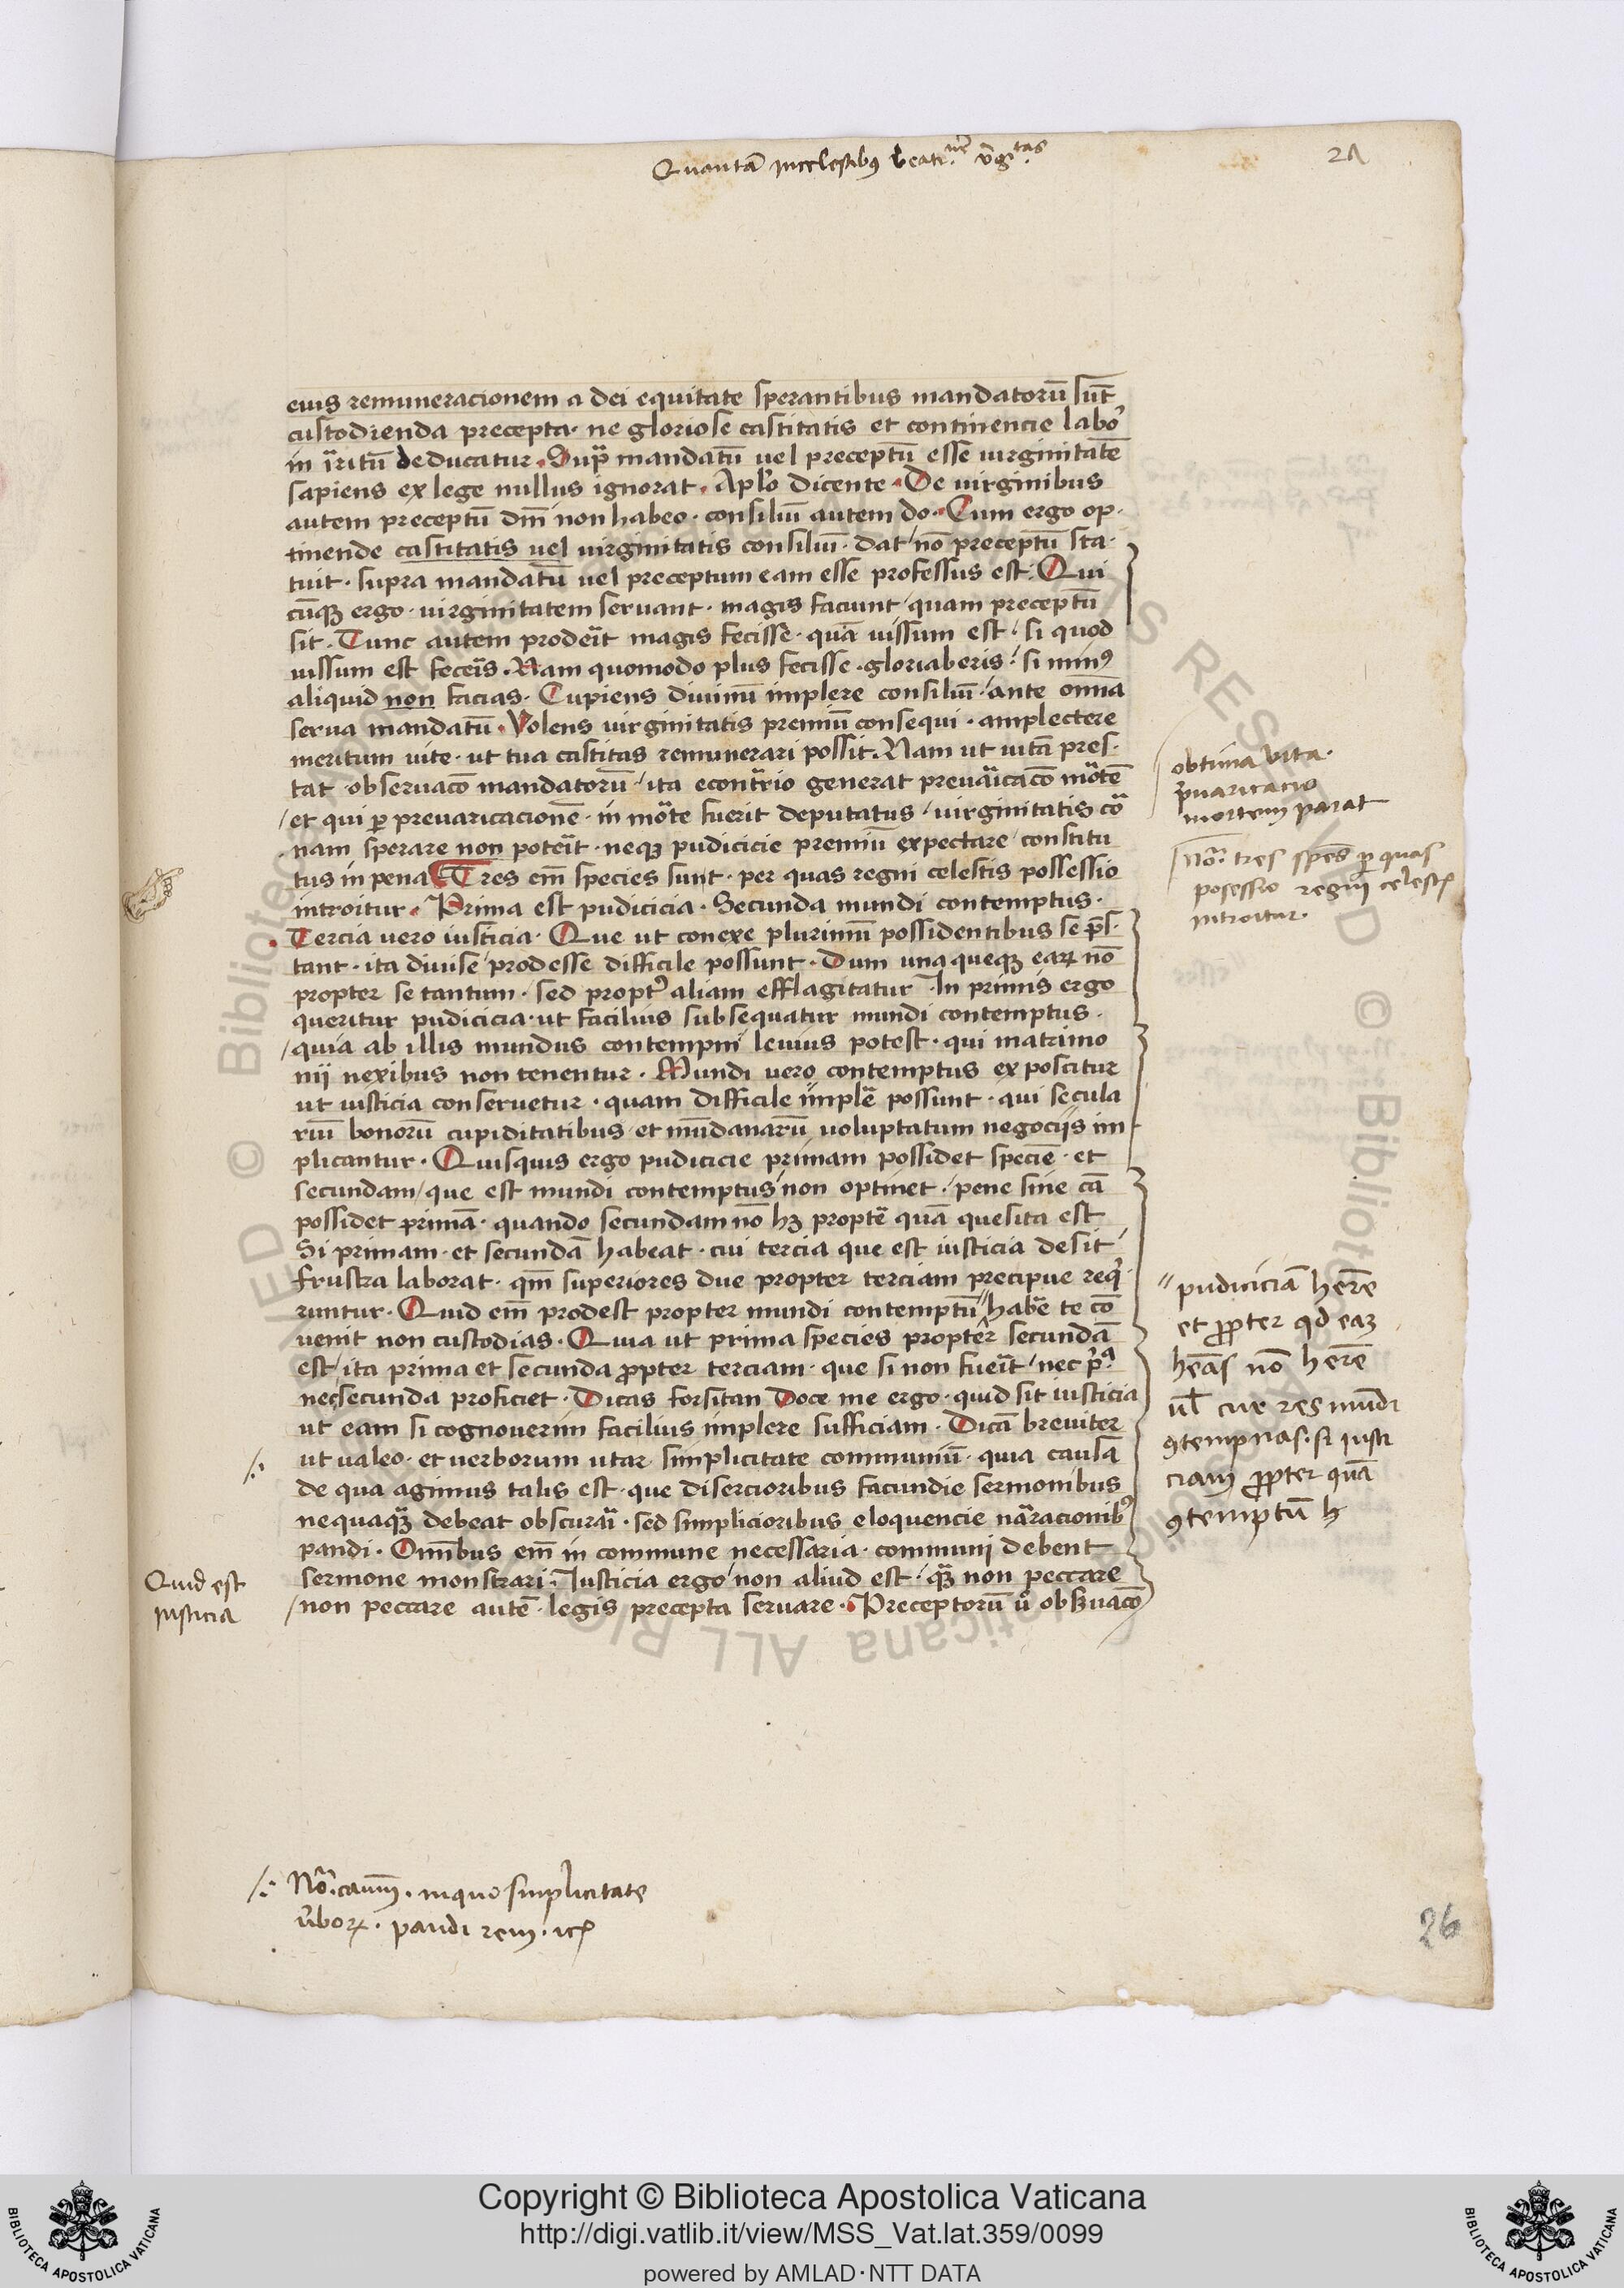 Quantā in celestibus beatitᵘᵉ v̄gᵗᵃˢ
21
eius remuneracionem a dei equitate sperantibus mandatorū sūt
custodienda precepta· ne gloriose castitatis et continencie labor
in irritū deducatur. Supra mandatū uel preceptū esse uirginitatē
sapiens ex lege nullus ignorat. Aplo dicente. De virginibus
autem preceptū dm̄ non habeo· consiliū autem do. Cum ergo op·
tinende castitatis uel virginitatis consiliū· dat/ nō preceptū sta·
tuit· supra mandatū uel preceptum eam esse professus est. Qui
cūqꝫ ergo· virginitatem seruant· magis faciunt/ quam preceptū
sit. Tunc autem proderit magis fecisse· quā iussum est/ si quod
iussum est feceris. Nam quomodo plus fecisse· gloriaberis/ si minꝰ
aliquid non facias. Cupiens diuinū implere consiliū/ ante omnia
serua mandatū. Volens uirginitatis premiū consequi· amplectere
meritum uite· ut tua castitas remunerari possit. Nam ut uitā pres·
tat obseruacō mandatorū/ ita econtrario generat preuaricacō mortē
/et qui ꝑ preuaricacionē· in morte fuerit deputatus/ uirginitatis coro
nam sperare non poterit· neqꝫ pudicicie premiū expectare/ constitu
tus in pena. Tres em̄ species sunt· per quas regni celestis possessio
introitur. Prima est pudicicia· Secunda mundi contemptus·
Tercia uero iusticia. Que ut conexe plurimū possidentibus se p̄s·
tant· ita diuise/ prodesse difficile possunt. Dum una queqꝫ earꝝ nō
propter se tantum· sed proptꝰ aliam efflagitatur. In primis ergo
queritur pudicicia· ut facilius subsequatur mundi contemptus·
/quia ab illis mundus contempni leuius potest· qui matrimo
nii nexibus non tenentur. Mundi uero contemptus exposcitur
ut iusticia conseruetur· quam difficile implere possunt· qui secula
riū bonorū cupiditatibus· et mūdanarū uoluptatum negociis im
plicantur. Quisquis ergo pudicicie primam possidet speciē· et
secundam/ que est mundi contemptus/ non optinet· pene sine cā
possidet primā· quando secundam nō hꝫ propter quā quesita est
Si primam· et secundā habeat· cui tercia que est iusticia desit/
frustra laborat· qm̄ superiores due propter terciam precipue requi
runtur. Quid em̄ prodest propter mundi contemptū// habere te cō
uenit non custodias. Quia ut prima species propter secundā
est/ ita prima et secunda ꝓpter terciam· que si non fuerit/ nec p̄ᵃ
nec secunda proficiet. Dicas forsitan Doce me ergo· quid sit iusticia
ut eam si cognouerim facilius implere sufficiam. Dicā breuiter
ut ualeo· et uerborum utar simplicitate communiū· quia causā
de qua agimus talis est· que disercioribus facundie sermonibus
nequaqꝫ debeat obscurari· sed simplicioribus eloquencie narracionibꝰ
pandi. Omībus em̄ in commune necessaria· communi debent
sermone monstrari. Iusticia ergo/ non aliud est/ qꝫ non peccare
/non peccare autē· legis precepta seruare. Preceptorū ū obsuacō
obtima vita·
p̄uaricatio
mortem parat
Nō. tres spēs ꝑ quas
posessio regni celestꝭ
introitur.
// pudiciciā hēre
et ꝓpter qd eaꝫ
hēas nō hēre
ūl cur res mūdi
ꝯtempnas. si iusti
ciam ꝓpter quā
ꝯtemptū h
Quid est
iusticia
/:· Nō. in quo simplicitate
ūborꝝ· pandi rem·
26
Copyright © Biblioteca Apostolica Vaticana
http://digi.vatlib.it/view/MSS_Vat.lat.359/0099
powered by AMLAD·NTT DATA
BIBLIOTECA APOSTOLICA VATICANA
BIBLIOTECA APOSTOLICA VATICANA